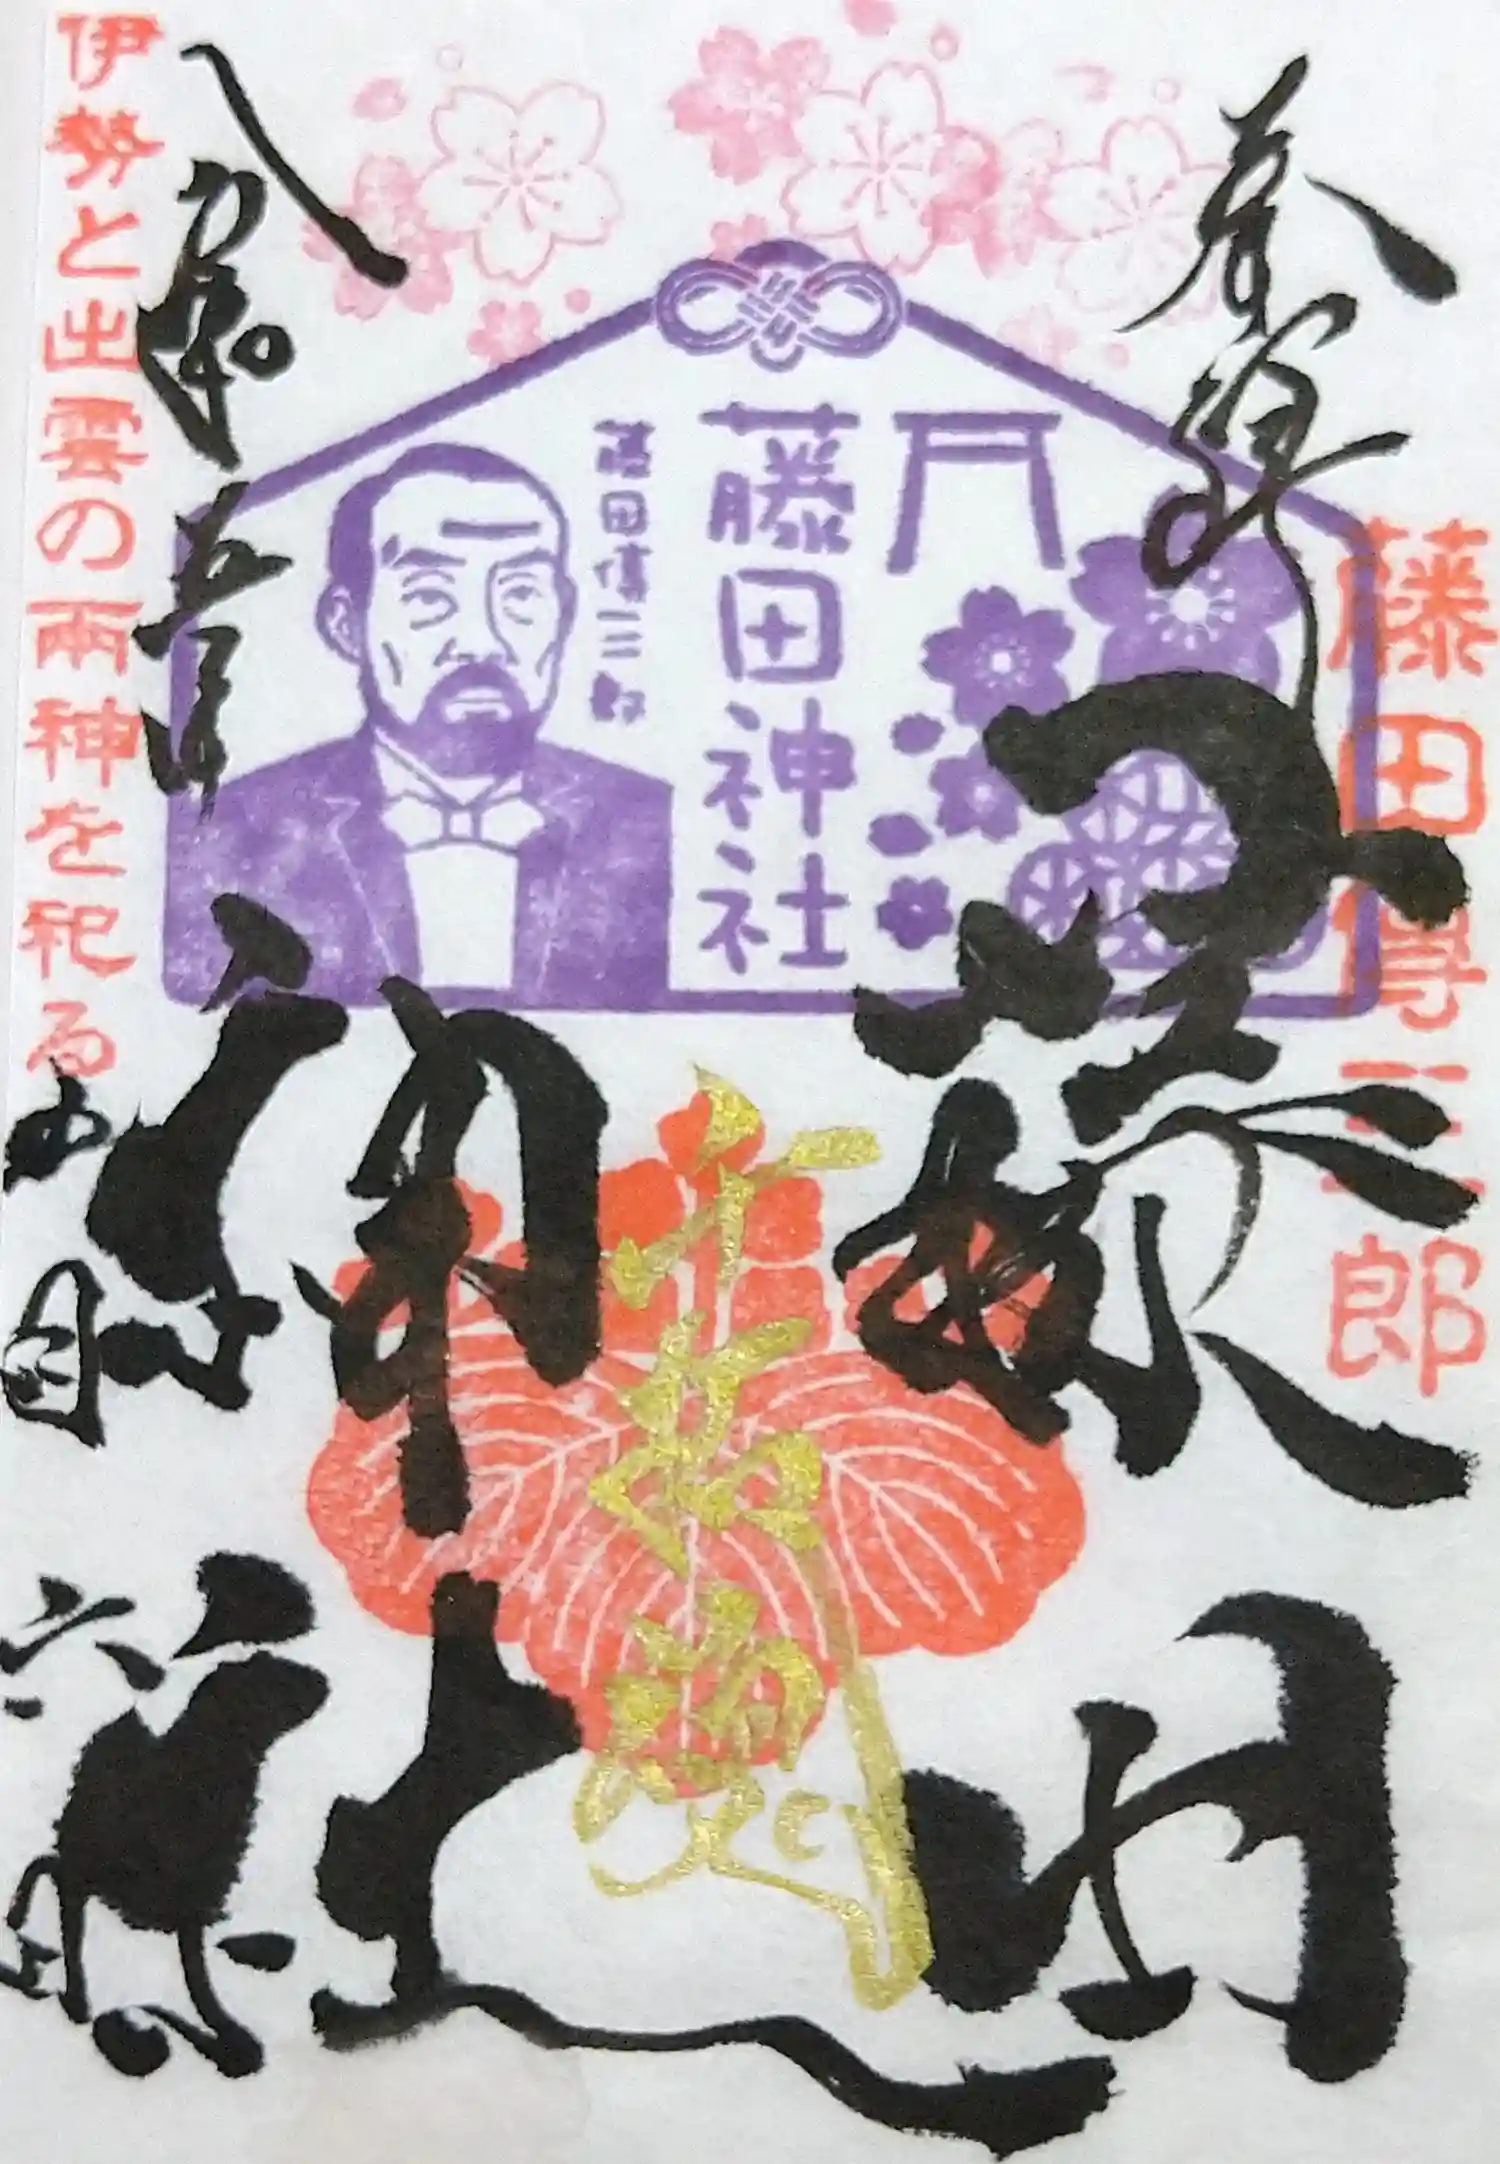 奉拝
藤田傳三郎
藤田神社
藤田神社
藤田傳三郎
令和五年
月六日
伊勢と出雲の兩神を祀る